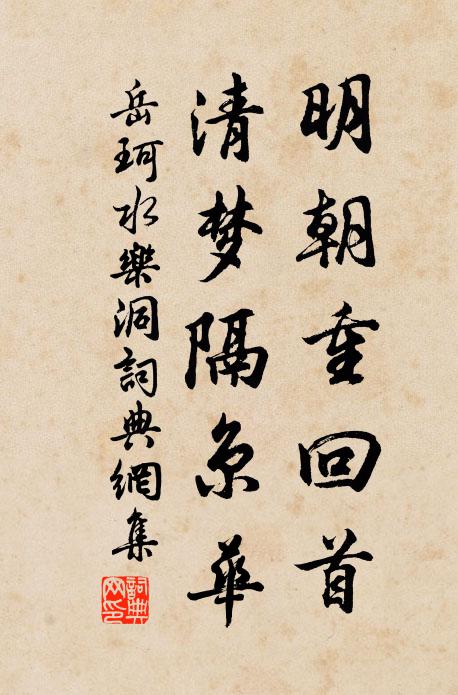 明朝重回首
清梦隔京华
岳珂水樂洞詞典網集
詞典
网印